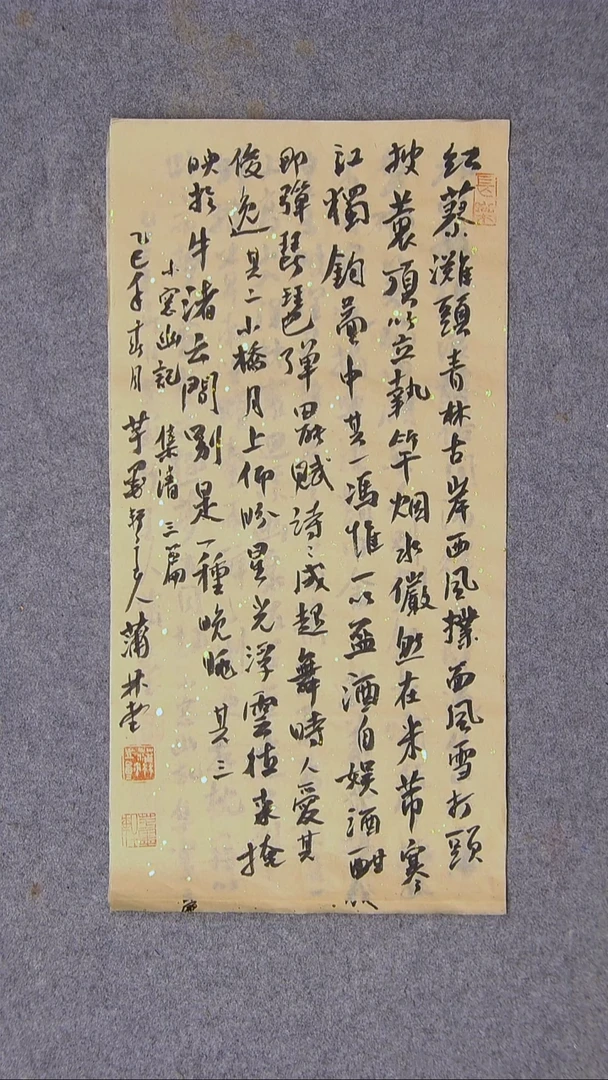 红蓼灘頭青林古岸西風撲面風雪打頭
披蓑頂笠執竿烟水儼然在米芾寒
江獨釣圖中其一馮惟一以盃酒自娱酒酣
即彈琵琶彈罷賦詩〻成起舞時人愛其
俊逸其二小橋月上仰盼星光浮雲往来掩
映於牛渚之間別是一種晚眺其三
小窓幽記 集清 三篇
乙巳年春月 主人 蒲林堂